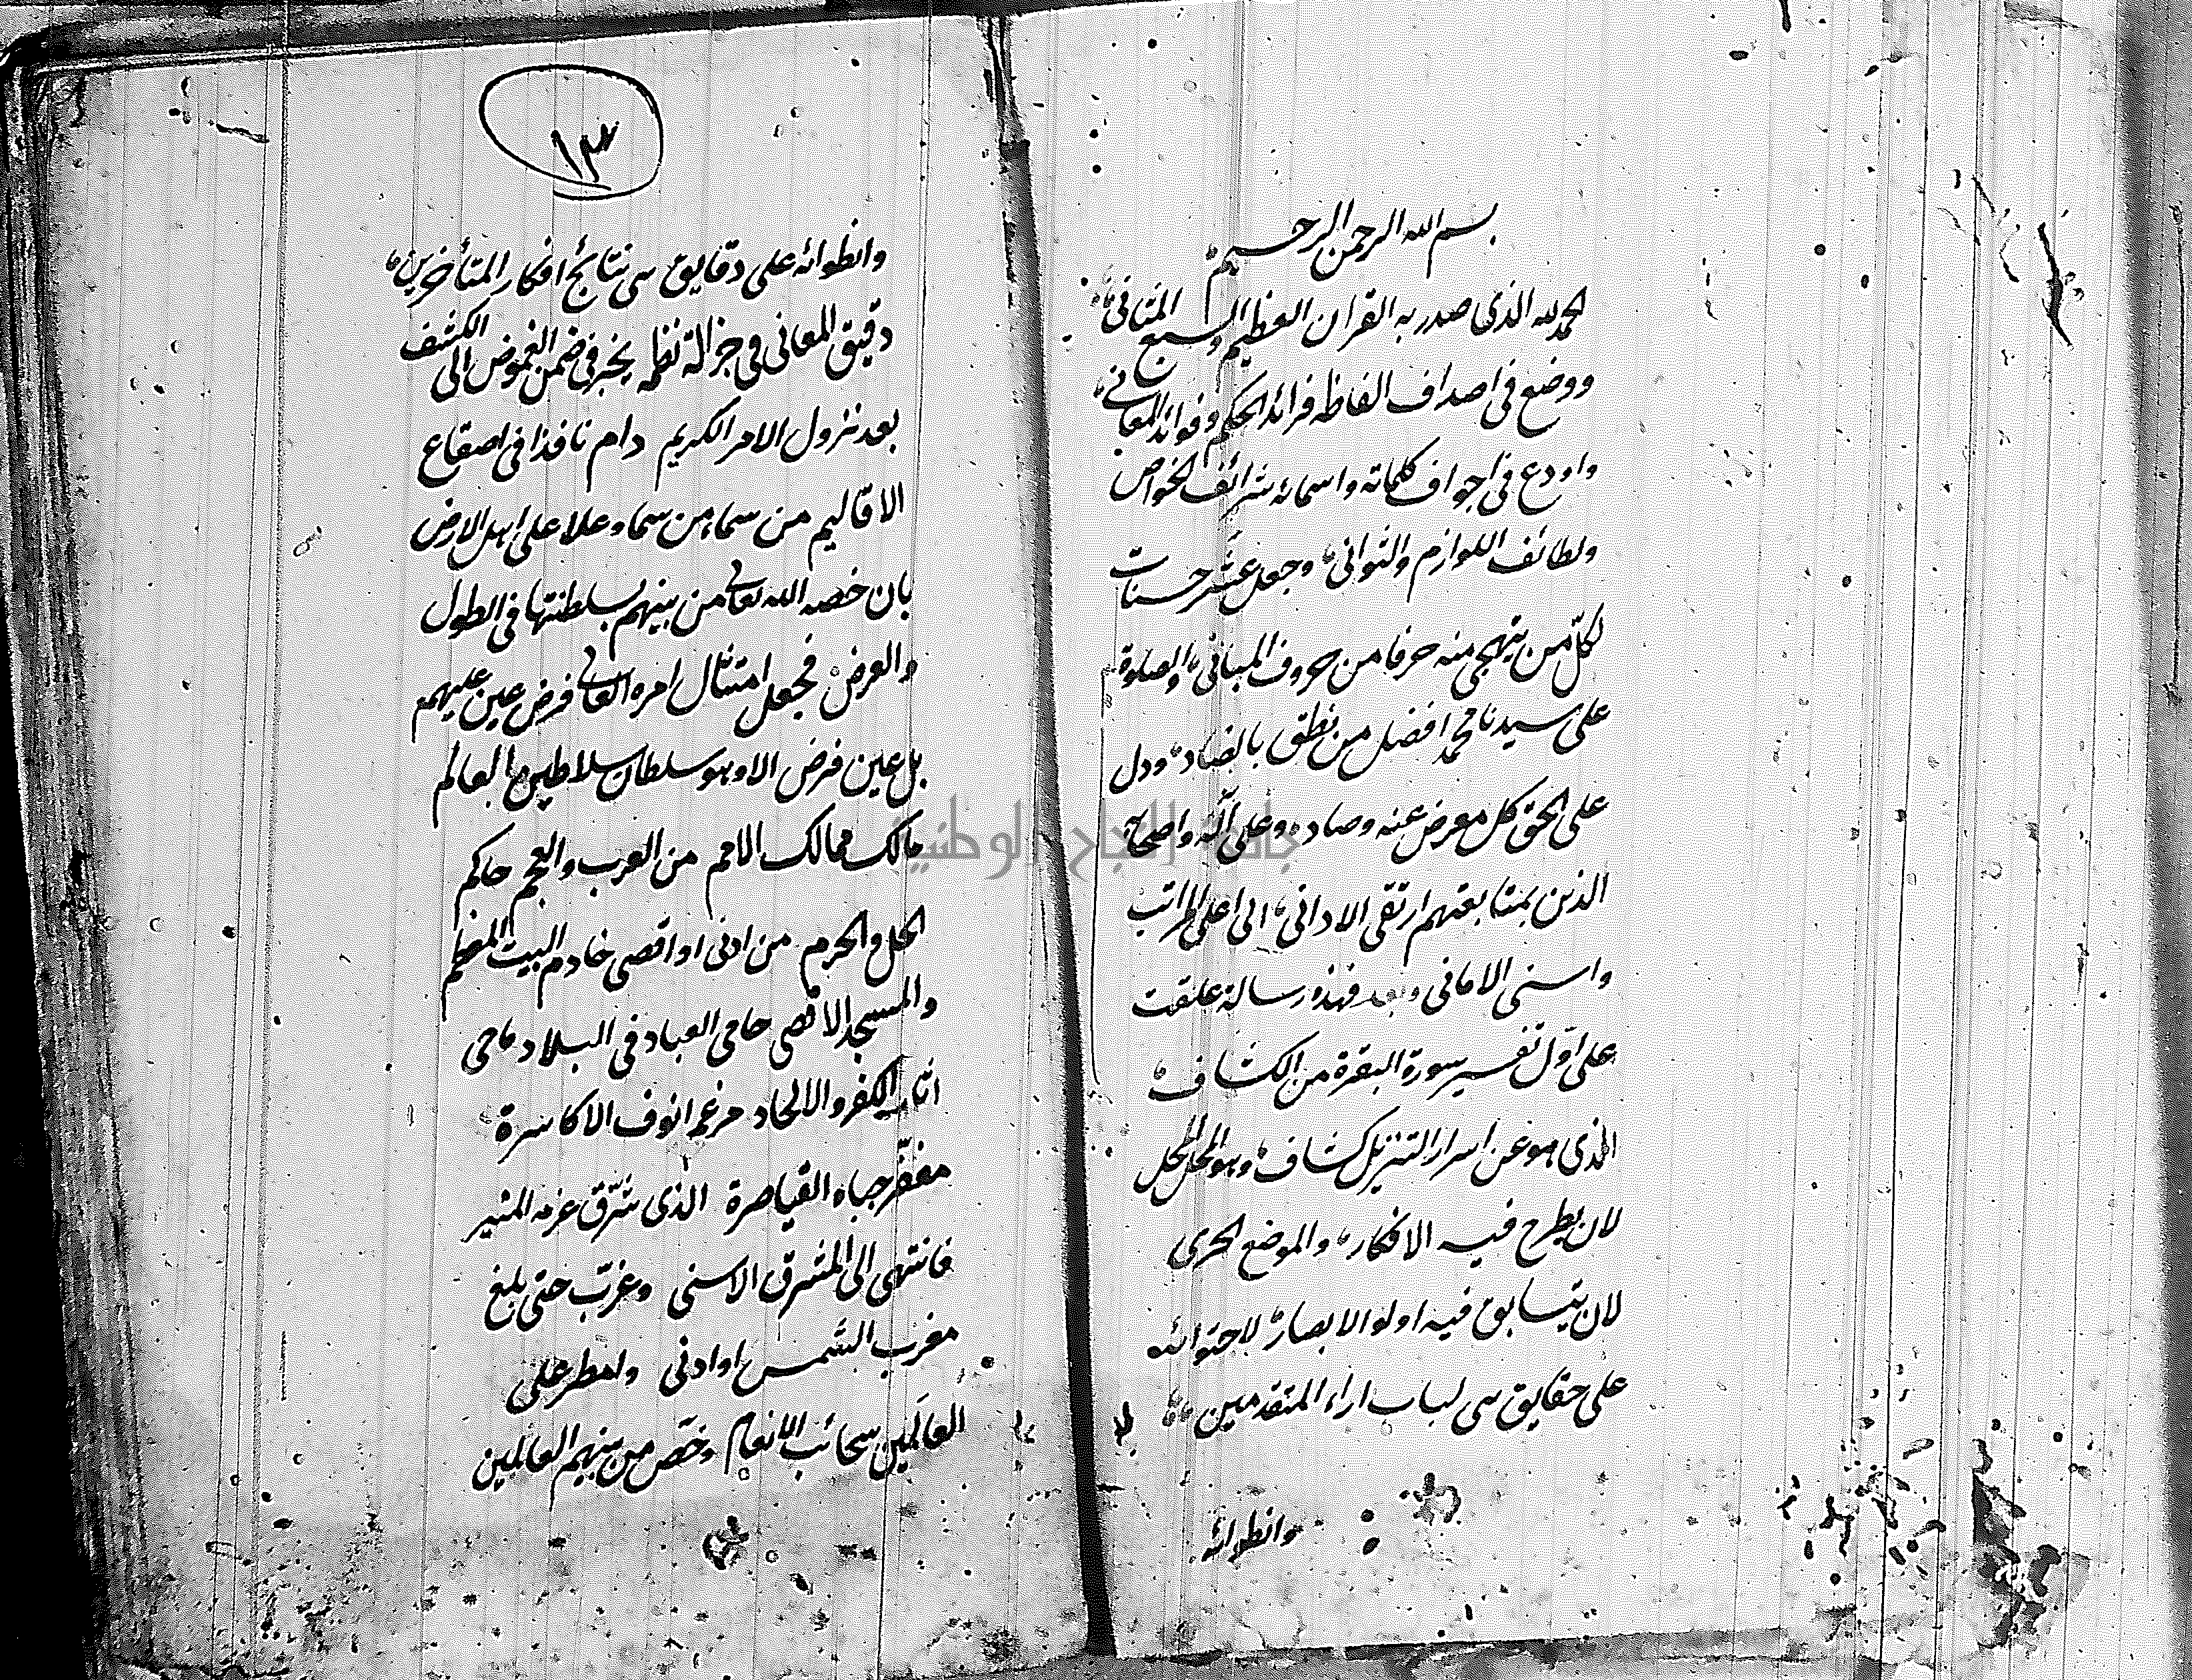 بسم الله الرحمن الرحيم
الحمد لله الذى صدر به القران العظيم والسبع المثانى
ووضع فى اصداف الفاظه فرائد الحكم وفوائد المعانى
واودع فى اجواف كلماته واسمائه شرائف الخواص
ولطائف اللوازم والثوانى وجعل عشر حسنات
لكلّ من يتهجى منه حرفا من حروف المبانى والصلوة
على سيدنا محمد افضل من نطق بالضاد ودل
على الحق كل معرض عنه وصاد وعلى آله واصحابه
الذين بمتابعتهم ارتقى الادانى الى اعلى المراتب
واسنى الامانى وبعد فهذه رسالة علقت
على اوّل تفسير سورة البقرة من الكشاف
الذى هو عن اسرار التنزيل كشاف وهو المحل المحل
لان يطرح فيه الافكار والموضع الحرى
لان يتسابق فيه اولو الابصار لاحتوائه
على حقايق هى لباب اراء المتقدمين
وانطوائه
١٣
وانطوائه على دقايق هى نتائج افكار المتأخرين
دقيق المعانى فى جزالة نظمه يخبر فى ضمن الغموض الى الكشف
بعد نزول الامر الكريم دام نافذا فى اصقاع
الاقاليم من سماء من سما وعلا على اهل الارض
بان خصه الله تعالى من بينهم بسلطنتها فى الطول
والعرض فجعل امتثال امره العالى فرض عين عليهم
بل عين فرض الا وهو سلطان سلاطين العالم
مالك ممالك الامم من العرب والعجم حاكم
الحل والحرم من ادنى او اقصى خادم البيت المعظم
والمسجد الاقصى حامى العباد فى البلاد ماحى
اثار الكفر والالحاد مرغم انوف الاكاسرة
معفّر جباه القياصرة الذى شرّق عزمه المنير
فانتهى الى المشرق الاسنى وغرّب حتى بلغ
مغرب الشمس او ادنى وامطر على
العالمين سحائب الانعام وخصّ من بينهم العالمين
جامعة النجاح الوطنية